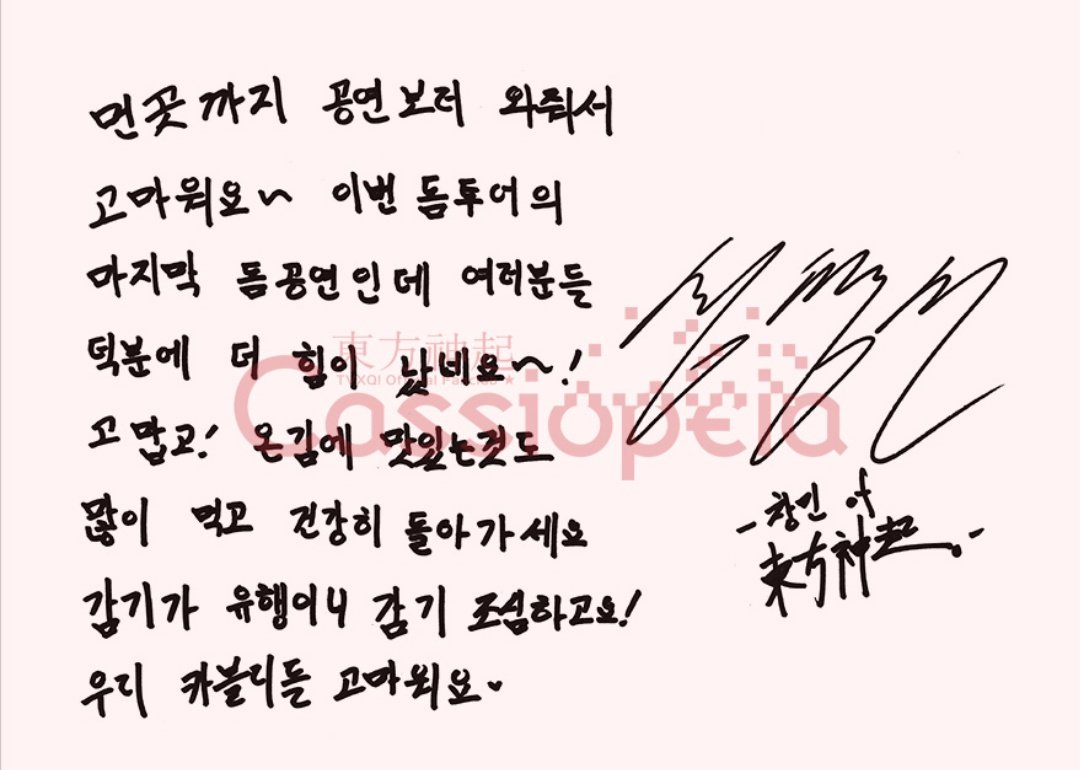 먼곳까지 공연보러 와줘서
고마워요~ 이번 돔투어의
마지막 돔공연인데 여러분들
덕분에 더 힘이 났네요~!
고맙고! 온김에 맛있는것도
많이 먹고 건강히 돌아가세요
감기가 유행이니 감기 조심하고요!
우리 카블리들 고마워요
東方神起
TVXQ! Official Fanclub ★
Cassiopeia
- 창민 of
東方神起. -